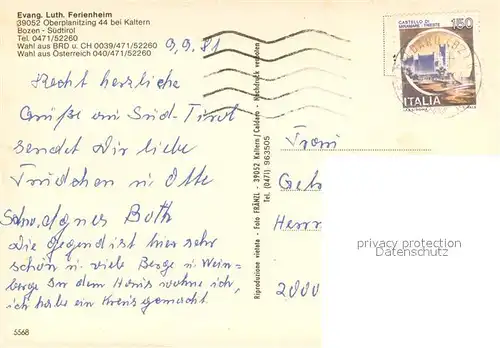 Evang. Luth. Ferienheim
39052 Oberplanitzing 44 bei Kaltern
Bozen - Südtirol
Tel. 0471/52260
Wahl aus BRD u. CH 0039/471/52260
Wahl aus Österreich 040/471/52260
9.9.81
CASTELLO DI
MIRAMARE - TRIESTE
150
ITALIA
Recht herzliche
Grüße aus Süd-Tirol
sendet Dir liebe
Trudchen u. Otto
Schw. Agnes Both
Die Gegend ist hier sehr
schön u. viele Berge u. Wein=
berge. In dem Haus wohne ich,
ich habe ein Kreis gemacht.
5568
Riproduzione vietata - Foto FRÄNZL - 39052 Kaltern/Caldaro - Nachdruck verboten
Tel. (0471) 963505
Frau
Herrn
2000
privacy protection
Datenschutz